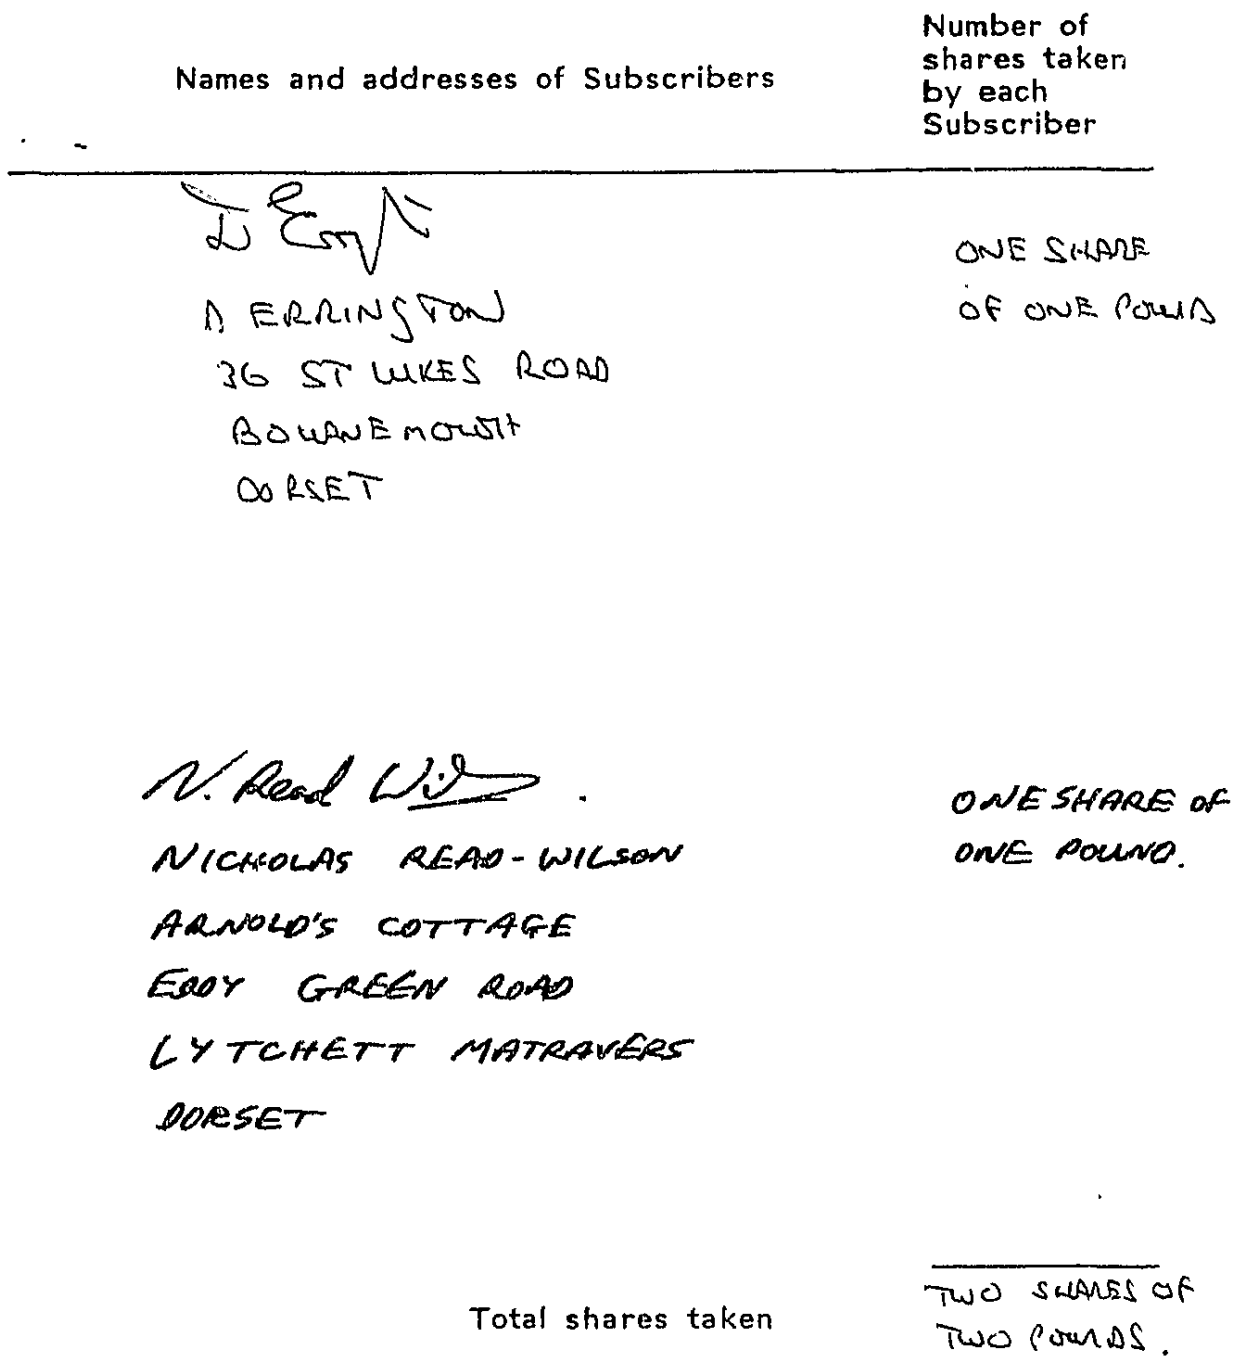 Names and addresses of Subscribers
Number of
shares taken
by each
Subscriber
D ERRINGTON
36 ST LUKES ROAD
BOURNEMOUTH
DORSET
ONE SHARE
OF ONE POUND
N. Read Wilson
NICHOLAS READ-WILSON
ARNOLD'S COTTAGE
EDDY GREEN ROAD
LYTCHETT MATRAVERS
DORSET
ONE SHARE OF
ONE POUND.
Total shares taken
TWO SHARES OF
TWO POUNDS.